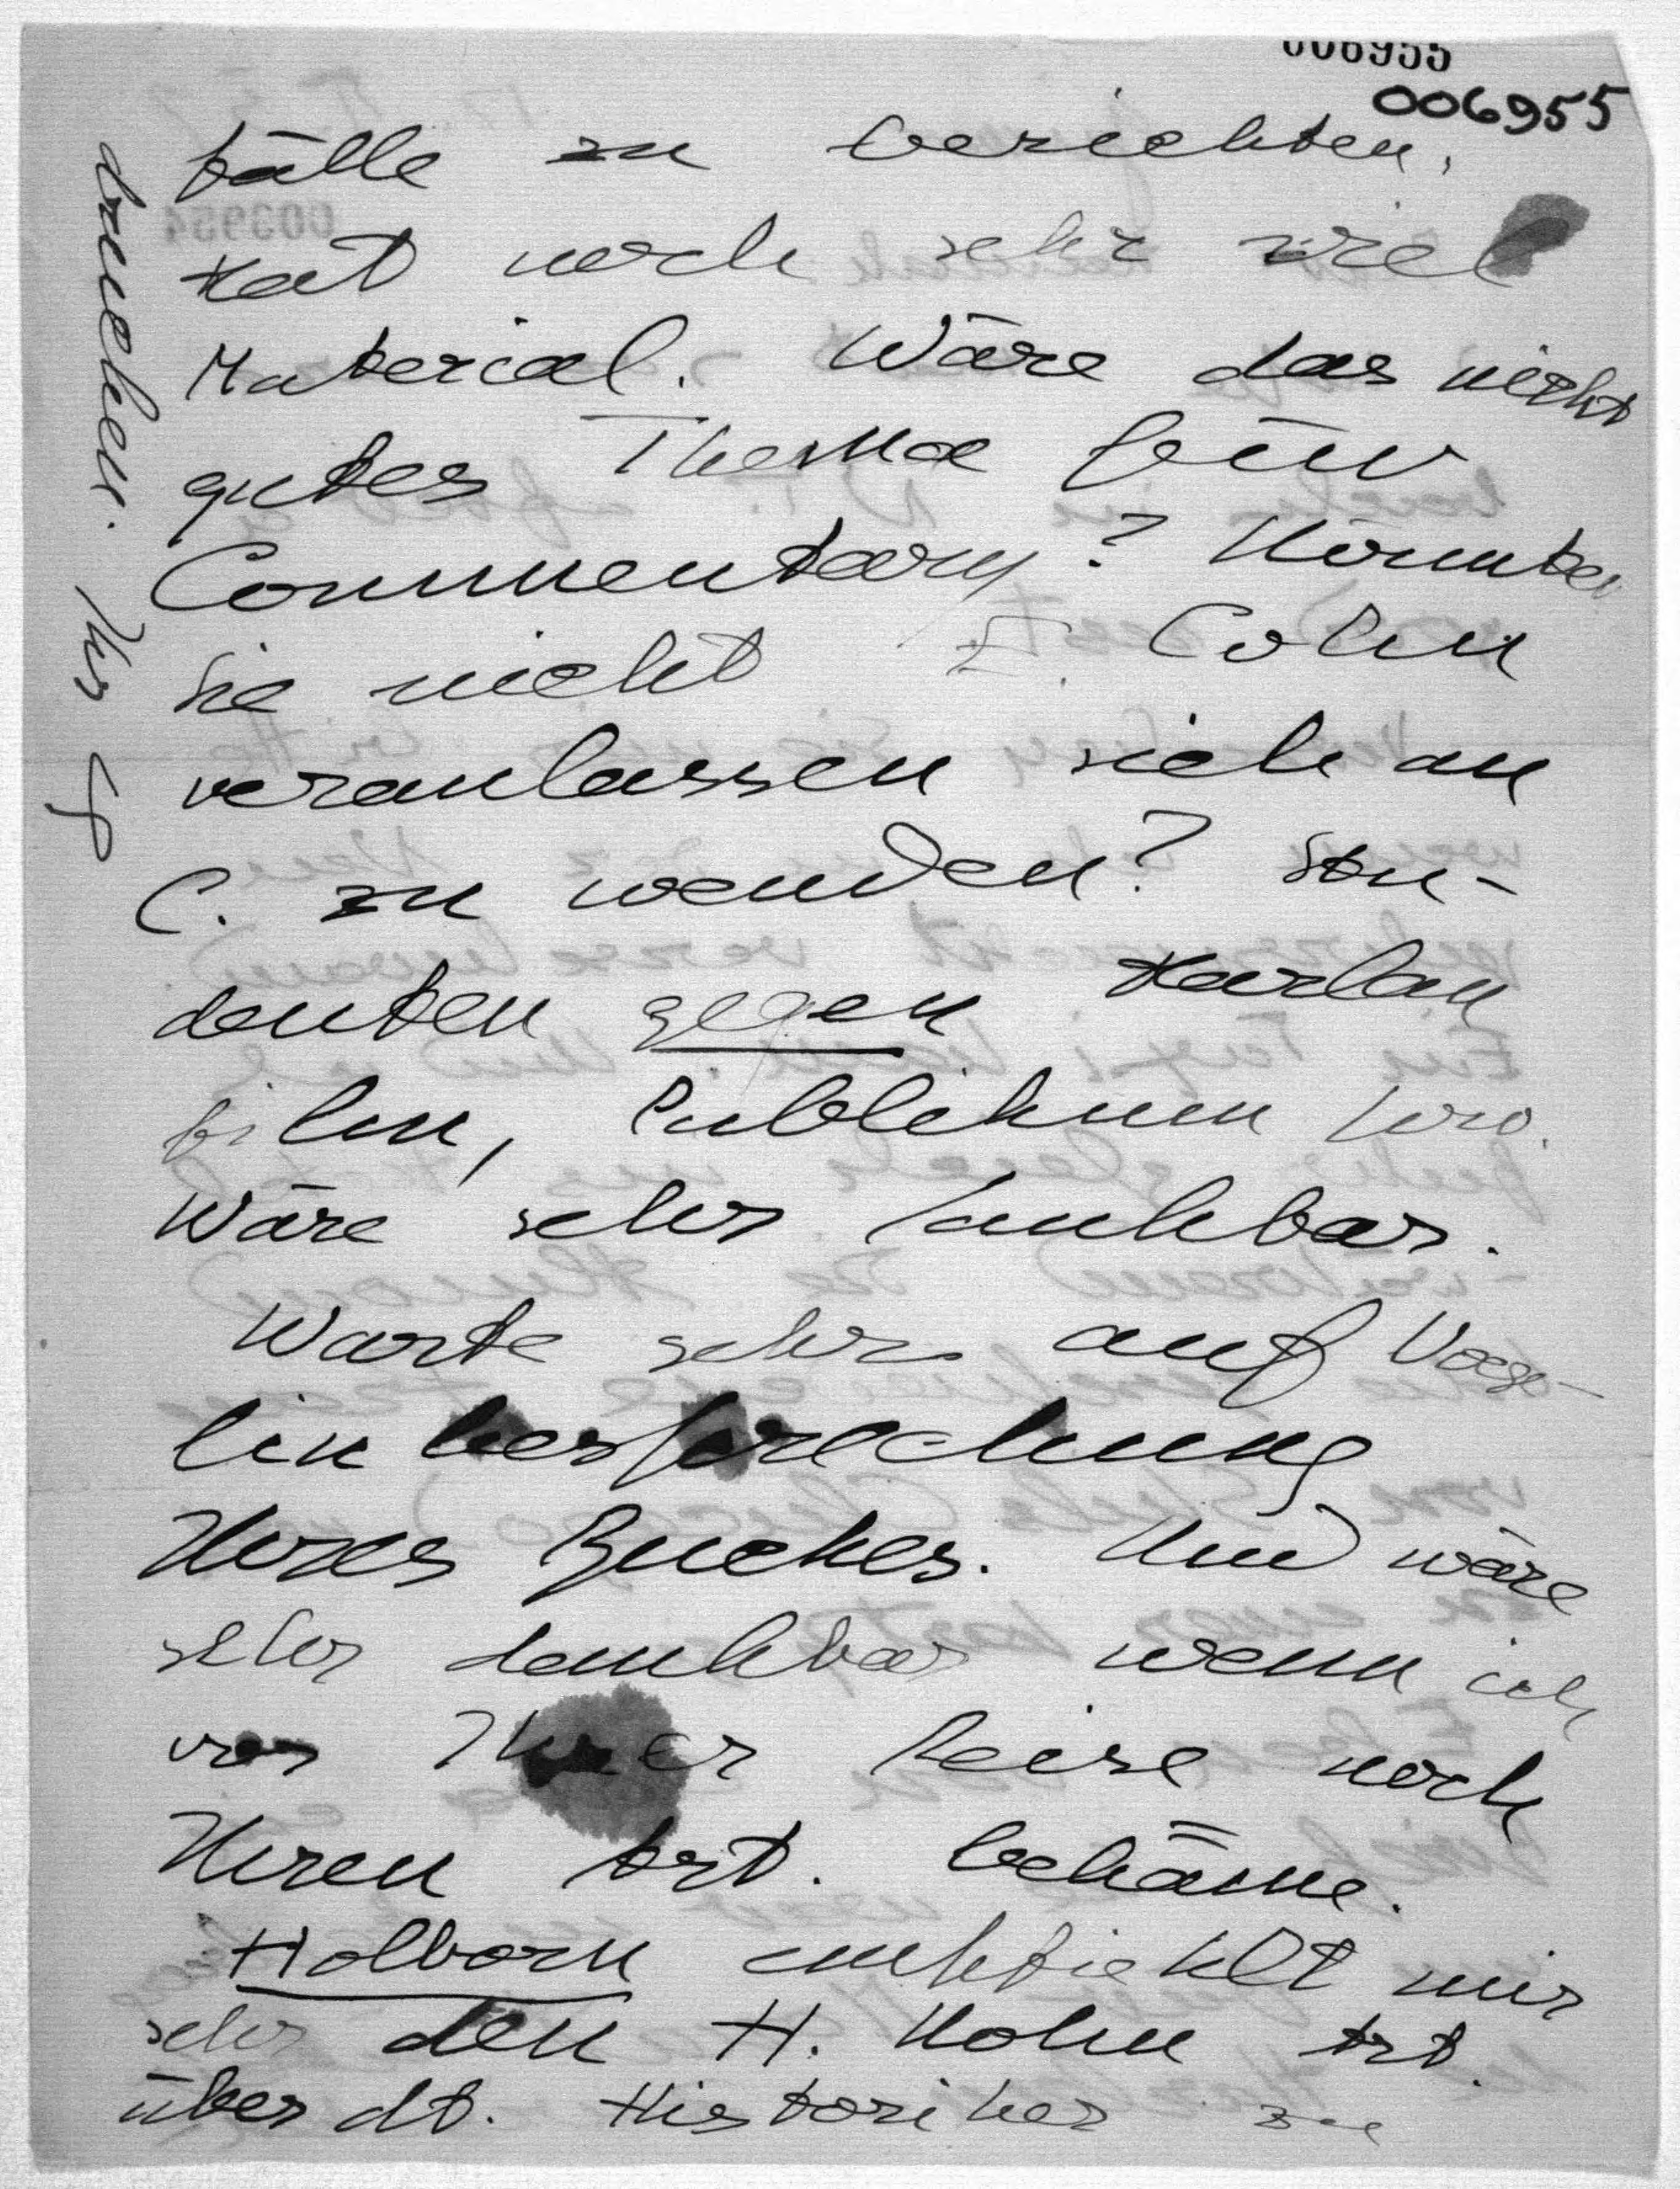 006955
006955
fälle zu berichten.
Hat noch sehr viel
Material. Wäre das nicht
gutes Thema für
Commentary? Könnten
Sie nicht E. Cohn
veranlassen sich an
C. zu wenden? Stu-
denten gegen Harlan
film, Publikum pro.
Wäre sehr dankbar.
Warte sehr auf Voege-
lin besprechung
Ihres Buches. Und wäre
sehr dankbar wenn ich
vor Ihrer Reise noch
Ihren Art. bekäme.
Holborn empfiehlt mir
sehr den H. Kohn Art.
über dt. Historiker zu
drucken. Ihr